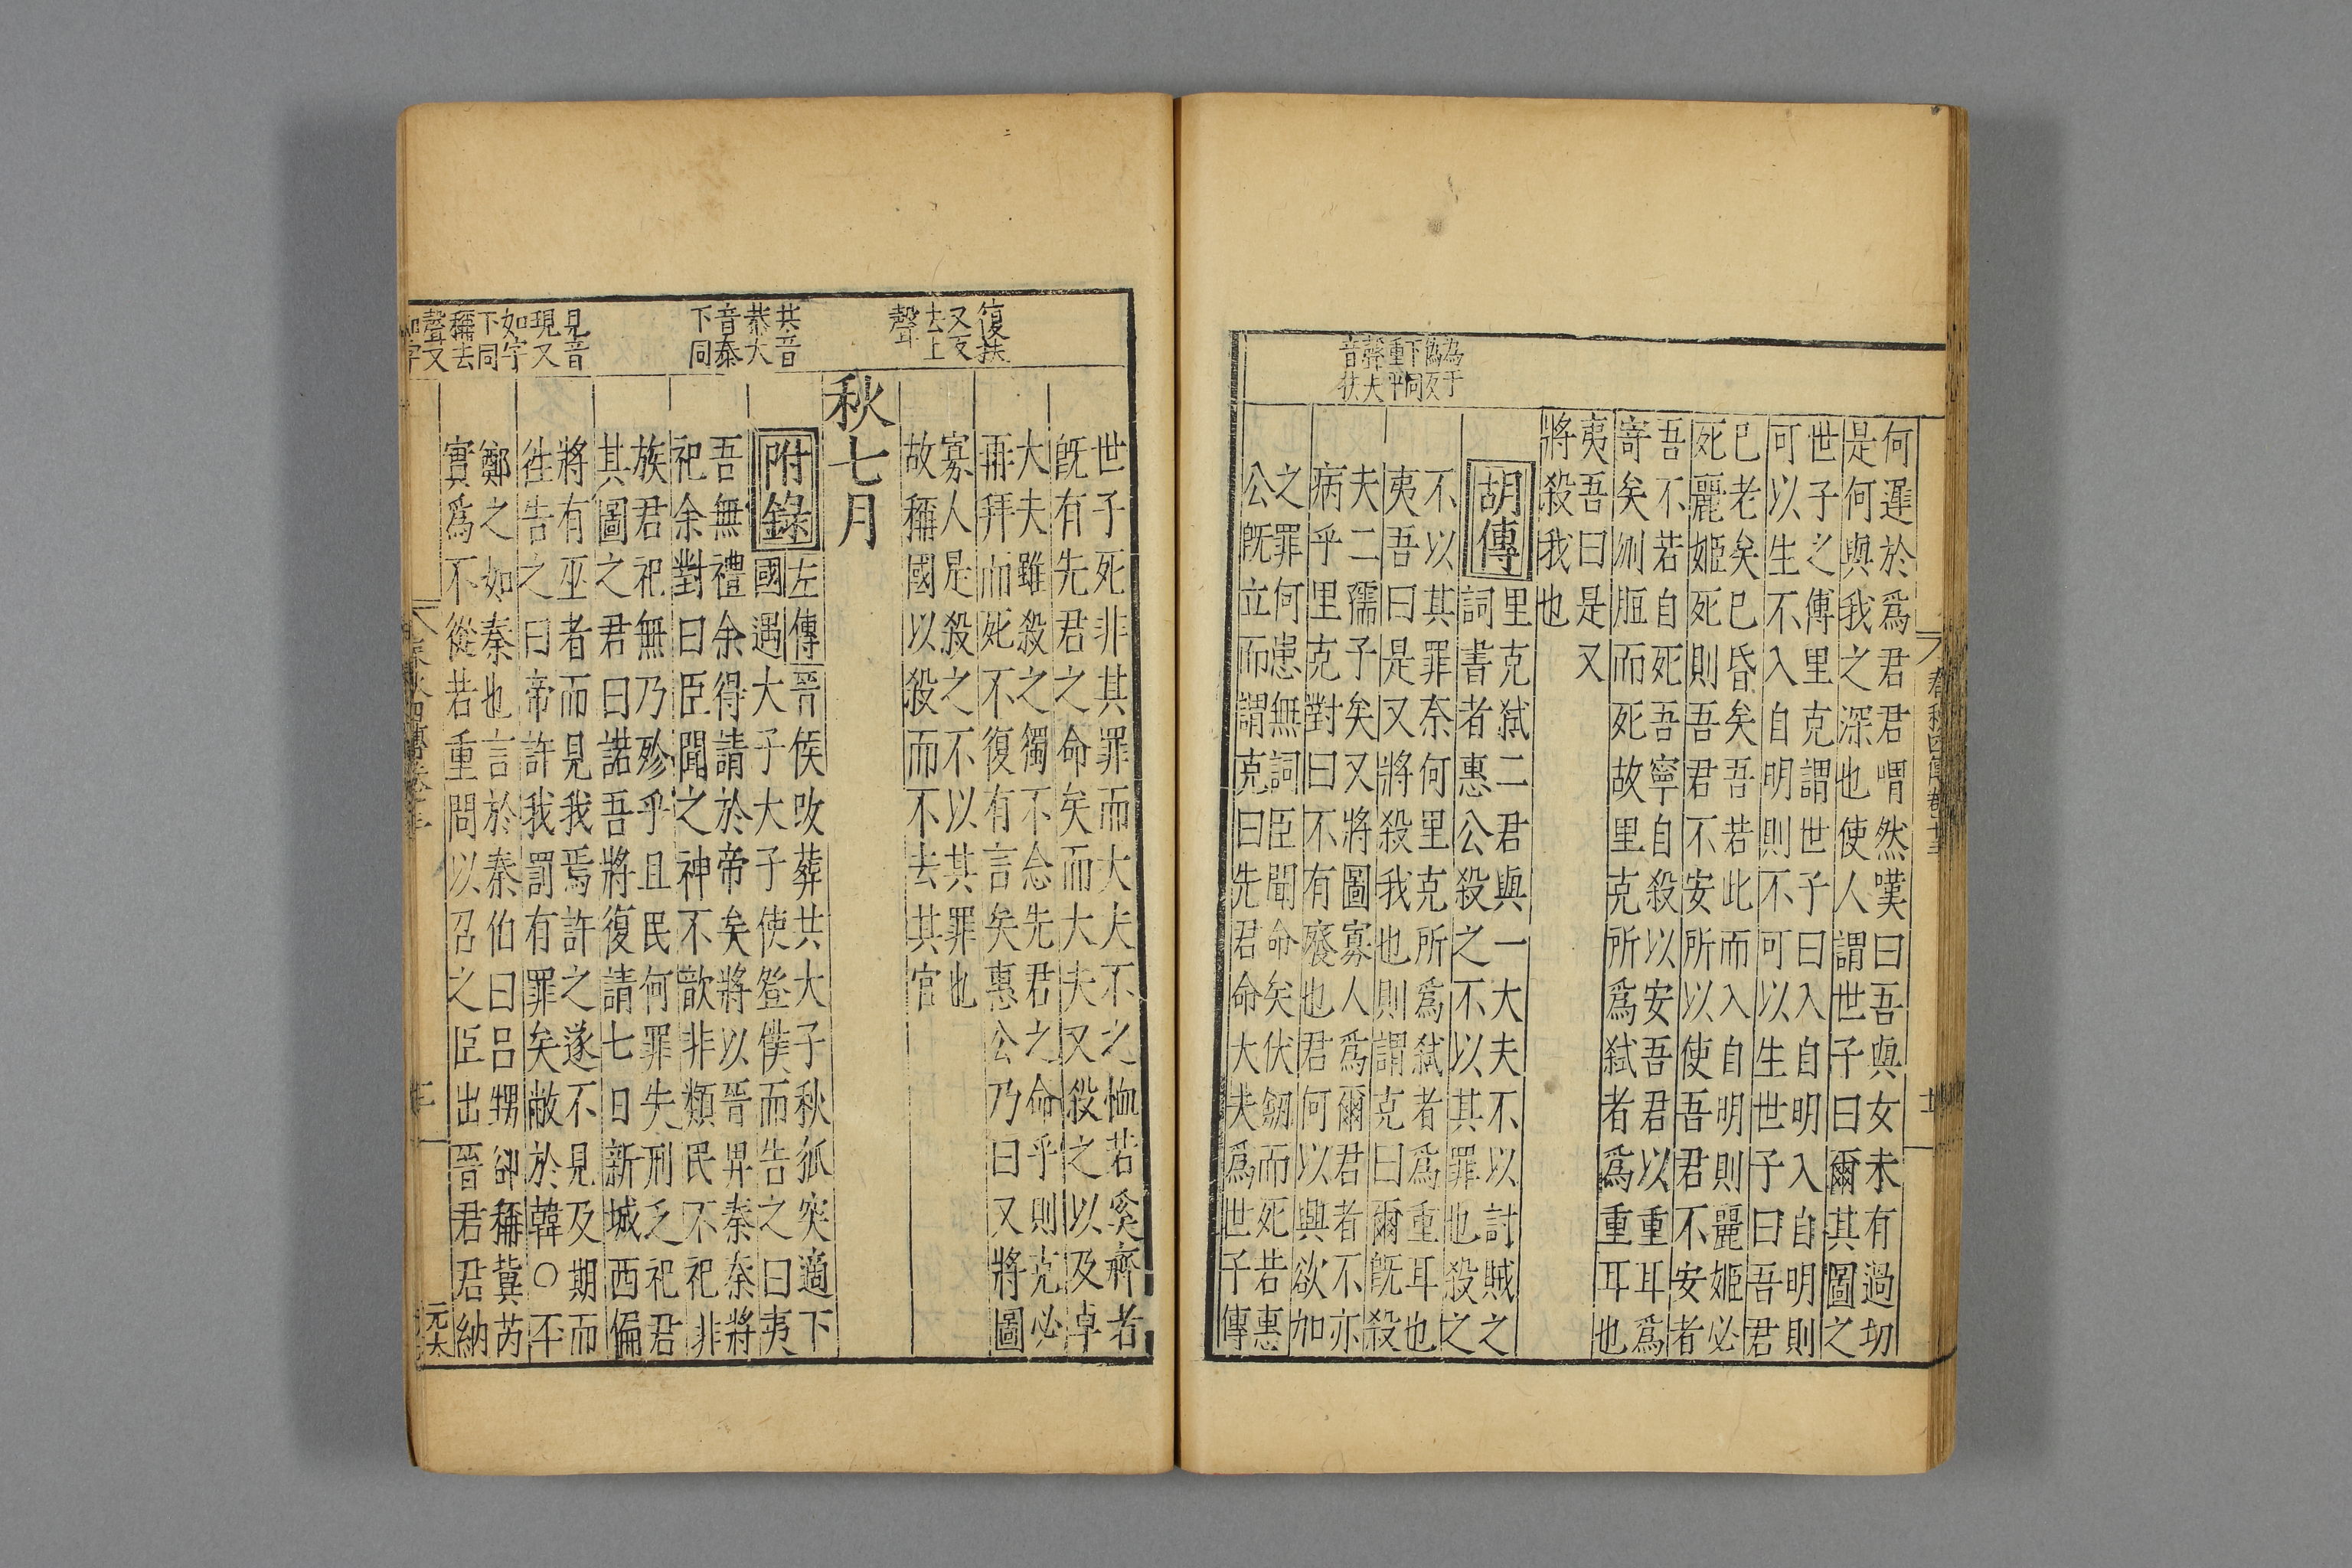 春秋四傳卷十三
何遲於爲君君喟然嘆曰吾與女未有過切
是何與我之深也使人謂世子曰爾其圖之
世子之傅里克謂世子曰入自明入自明則
可以生不入自明則不可以生世子曰吾君
已老矣已昏矣吾若此而入自明則麗姬必
死麗姬死則吾君不安所以使吾君不安者
吾不若自死吾寧自殺以安吾君以重耳爲
寄矣刎脰而死故里克所爲弒者爲重耳也
夷吾曰是又
將殺我也
胡傳
里克弒二君與一大夫不以討賊之
詞書者惠公殺之不以其罪也殺之
不以其罪奈何里克所爲弒者爲重耳也
夷吾曰是又將殺我也則謂克曰爾既殺
夫二孺子矣又將圖寡人爲爾君者不亦
病乎里克對曰不有廢也君何以興欲加
之罪何患無詞臣聞命矣伏劒而死若惠
公既立而謂克曰先君命大夫爲世子傅
為于
僞反
下同
重平
聲夫
音扶
世子死非其罪而大夫不之恤若奚齊者
既有先君之命矣而大夫又殺之以及卓
大夫雖殺之獨不念先君之命乎則克必
再拜而死不復有言矣惠公乃曰又將圖
寡人是殺之不以其罪也
故稱國以殺而不去其官
秋七月
附錄
左傳晉侯改葬共大子秋狐突適下
國遇大子大子使登僕而告之曰夷
吾無禮余得請於帝矣將以晉畀秦秦將
祀余對曰臣聞之神不歆非類民不祀非
族君祀無乃殄乎且民何罪失刑乏祀君
其圖之君曰諾吾將復請七日新城西偏
將有巫者而見我焉許之遂不見及期而
徃告之曰帝許我罰有罪矣敝於韓○丕
鄭之如秦也言於秦伯曰呂甥郤稱冀芮
實爲不從若重問以召之臣出晉君君納
復扶
又反
去上
聲
共音
恭大
音泰
下同
見音
現又
如字
下同
稱去
聲又
如字